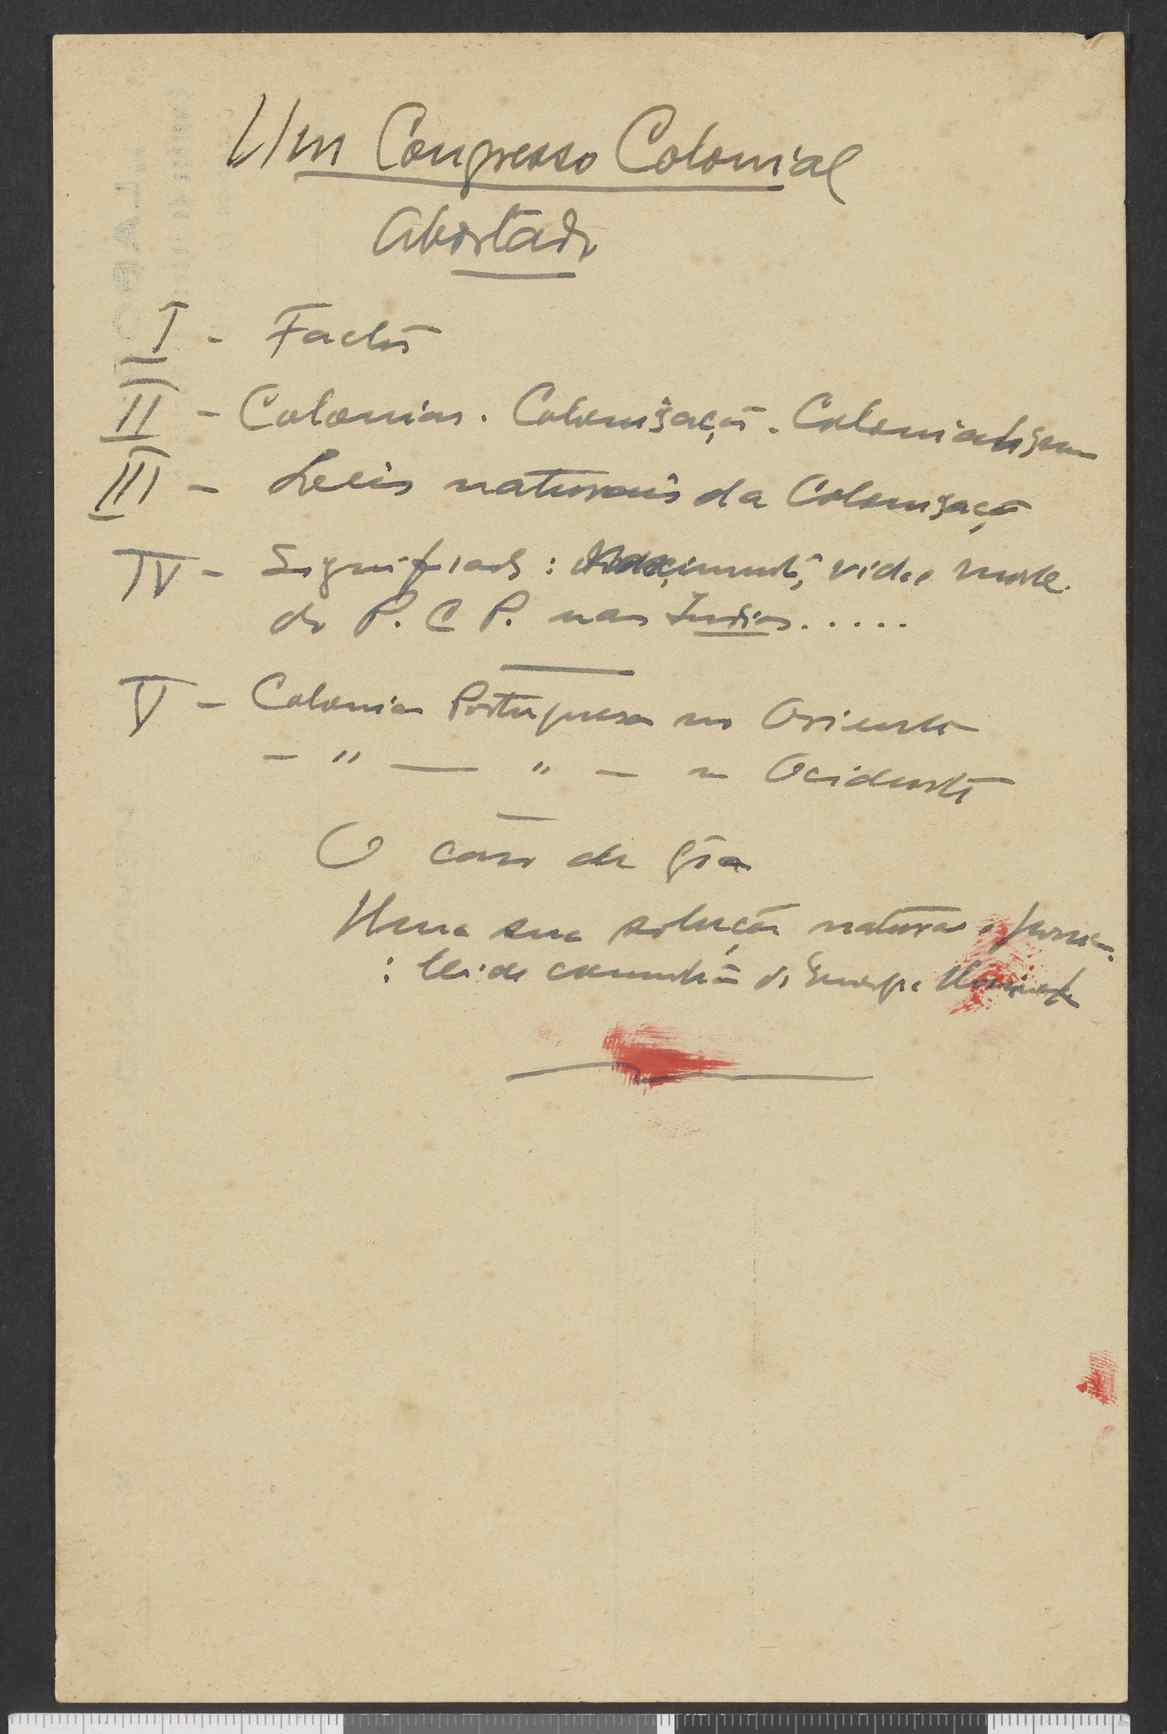 Um Congresso Colonial
Abortado
I - Factos
II - Colonias. Colonização. Colonialismo
III - Leis naturais da Colonização
IV - Significado: Nascimento, vida e morte
do P. C P. nas Indias.....
V - Colonias Portuguesas no Oriente
- " - " - no Ocidente
O caso de Goa
Uma sua solução natural e
: lei de da Energia